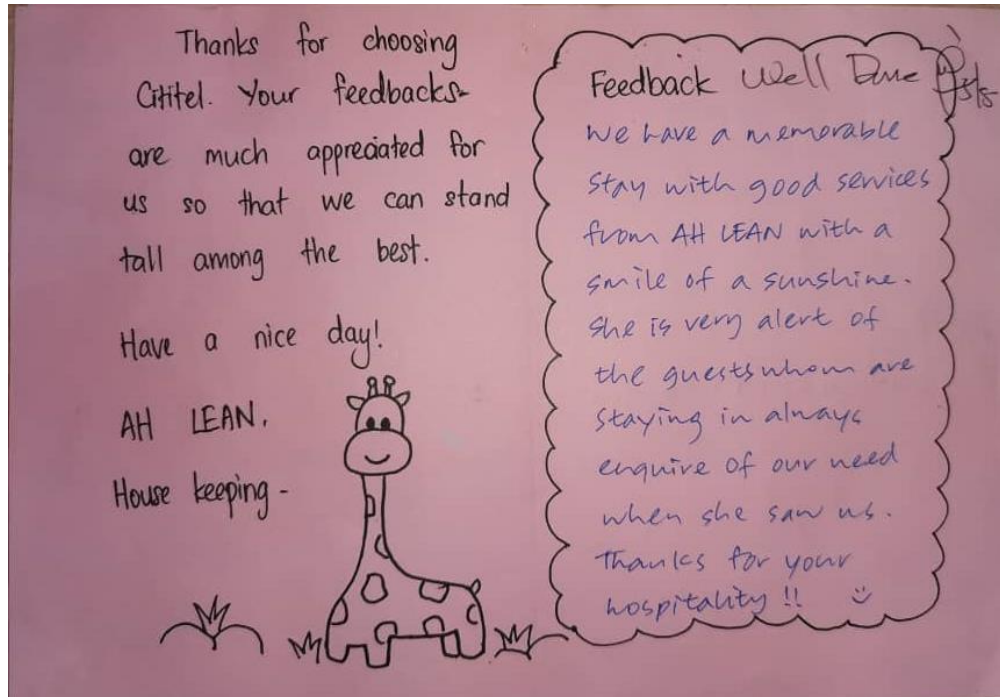 Thanks for choosing
Cititel. Your feedbacks
are much appreciated for
us so that we can stand
tall among the best.
Have a nice day!
AH LEAN.
House keeping -
Feedback Well Done
we have a memorable
stay with good services
from AH LEAN with a
smile of a sunshine.
She is very alert of
the guests whom are
staying in always
enquire of our need
when she saw us.
Thanks for your
hospitality !!